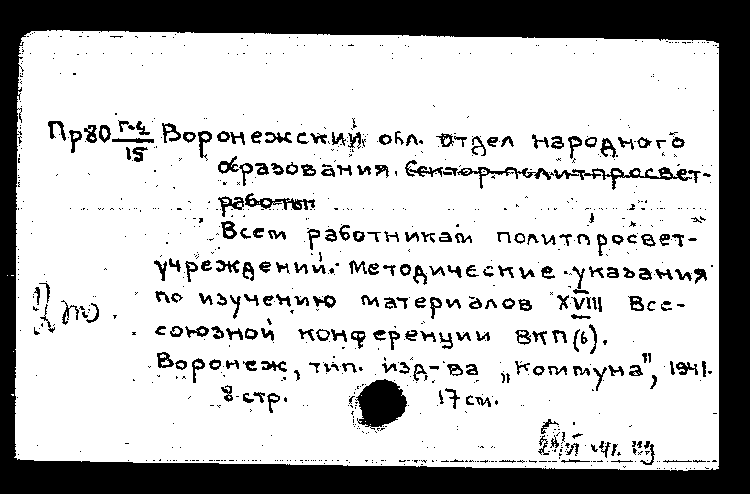 Пр80 Г-4/15 Воронежский обл. отдел народного
образования. Сектор политпросвет-
работы
Всем работникам политпросвет-
учреждений. Методические указания
по изучению материалов XVIII Все-
союзной конференции ВКП(б).
Воронеж, тип. изд-ва „Коммуна", 1941.
8 стр. 17 см.